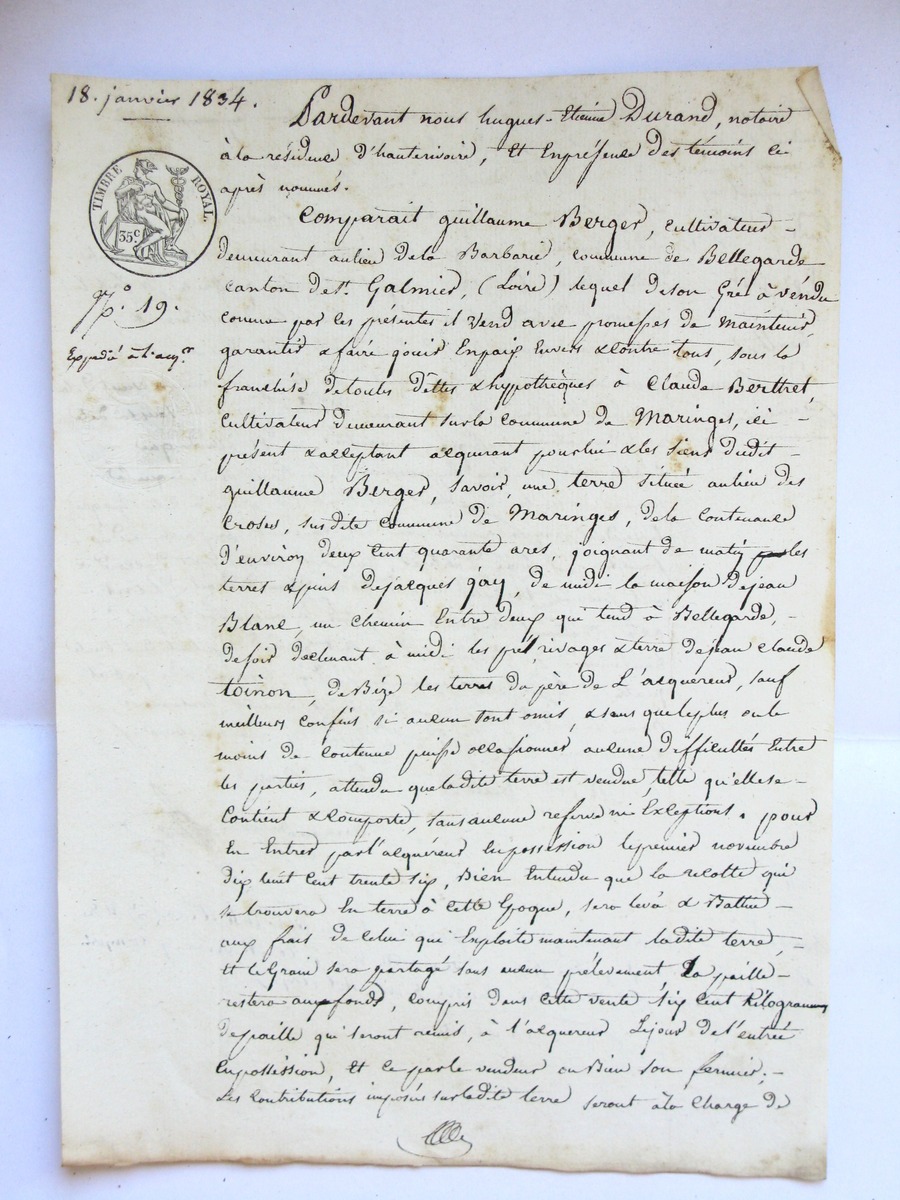 18. janvier 1834.
Pardevant nous hugues-Etienne Durand, notaire
à la résidence d'hauterivoire, et En présence des témoins ci
après nommés.
TIMBRE ROYAL.
35 c.
Comparait guillaume Berger, cultivateur -
demeurant au lieu dela Barbarie, commune de Bellegarde
canton de St. Galmier, (Loire) lequel de son Gré à vendu
comme par les présentes il vend avec promesses de maintenir,
N.o 19.
garantir & faire jouir En paix Envers & contre tous, sous la
Expédié à l'acqr.
franchise de toutes dettes & hypothèques à Claude Berthet,
cultivateur demeurant sur la commune de Maringes, ici -
présent & acceptant acquerant pour lui & les siens dudit -
guillaume Berger, savoir, une terre située au lieu des
Croses, susdite commune de Maringes, dela contenance
d'environ deux cent quarante ares, joignant de matin les
terres & pins de jacques gay, de midi la maison de jean
Blanc, un chemin Entre deux qui tend à Bellegarde, -
de soir declinant à midi les pré, rivages & terre de jean claude
toinon, de Bize les terres du père de L'acquereur, sauf
meilleurs confins si aucun sont omis, & sans que le plus ou le
moins de contenue puisse occasionner aucune difficultés Entre
les parties, attendu que ladite terre est vendue, telle qu'elle se -
Contient & comporte, sans aucune reserve ni Exceptions. pour
En Entrer par l'acquéreur En possession le premier novembre
dix huit cent trente six, Bien Entendu que la recolte qui
se trouvera En terre à cette Epoque, sera levé & Battue -
aux frais de celui qui Exploite maintenant ladite terre, -
et le Grain sera partagé sans aucun prélevement, La paille -
restera au fonds, compris dans cette vente six cent Kilogrammes
de paille qui seront remis, à l'acquereur Le jour de l'entrée
En possession, et ce par le vendeur ou Bien son fermier; -
Les contributions imposées sur ladite terre seront à la charge de